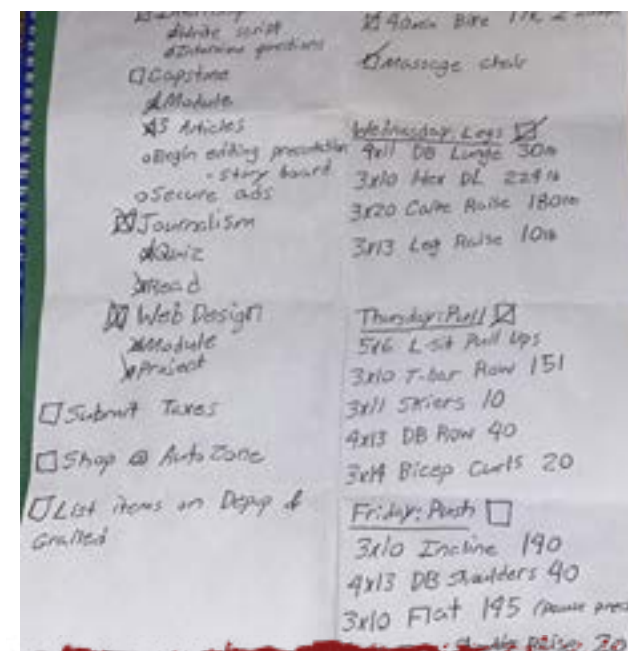 Write script
Determine questions
Capstone
Module
5 Articles
Begin editing presentation
- Story board
Secure ads
Journalism
Quiz
Read
Web Design
Module
Project
Submit Taxes
Shop @ AutoZone
List items on Depop &
Grailed
40min Bike
Massage chair
Wednesday: Legs
4x11 DB Lunge 30lb
3x10 Hex DL 229lb
3x20 Calve Raise 180lb
3x13 Leg Raise 10lb
Thursday: Pull
5x6 L-sit Pull Ups
3x10 T-bar Row 151
3x11 Skiers 10
4x13 DB Row 40
3x14 Bicep Curls 20
Friday: Push
3x10 Incline 190
4x13 DB Shoulders 40
3x10 Flat 195 (pause
Raise 20